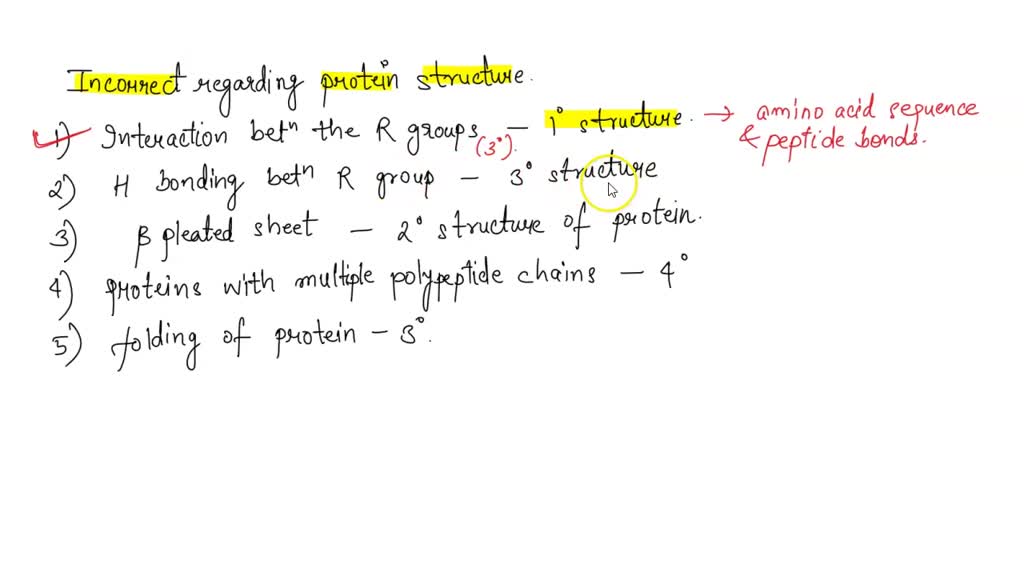 Incorrect regarding protein structure.
1) Interaction betn the R groups (3°). – 1° structure. → amino acid sequence & peptide bonds.
2) H bonding betn R group – 3° structure
3) β pleated sheet – 2° structure of protein.
4) proteins with multiple polypeptide chains – 4°
5) folding of protein – 3°.